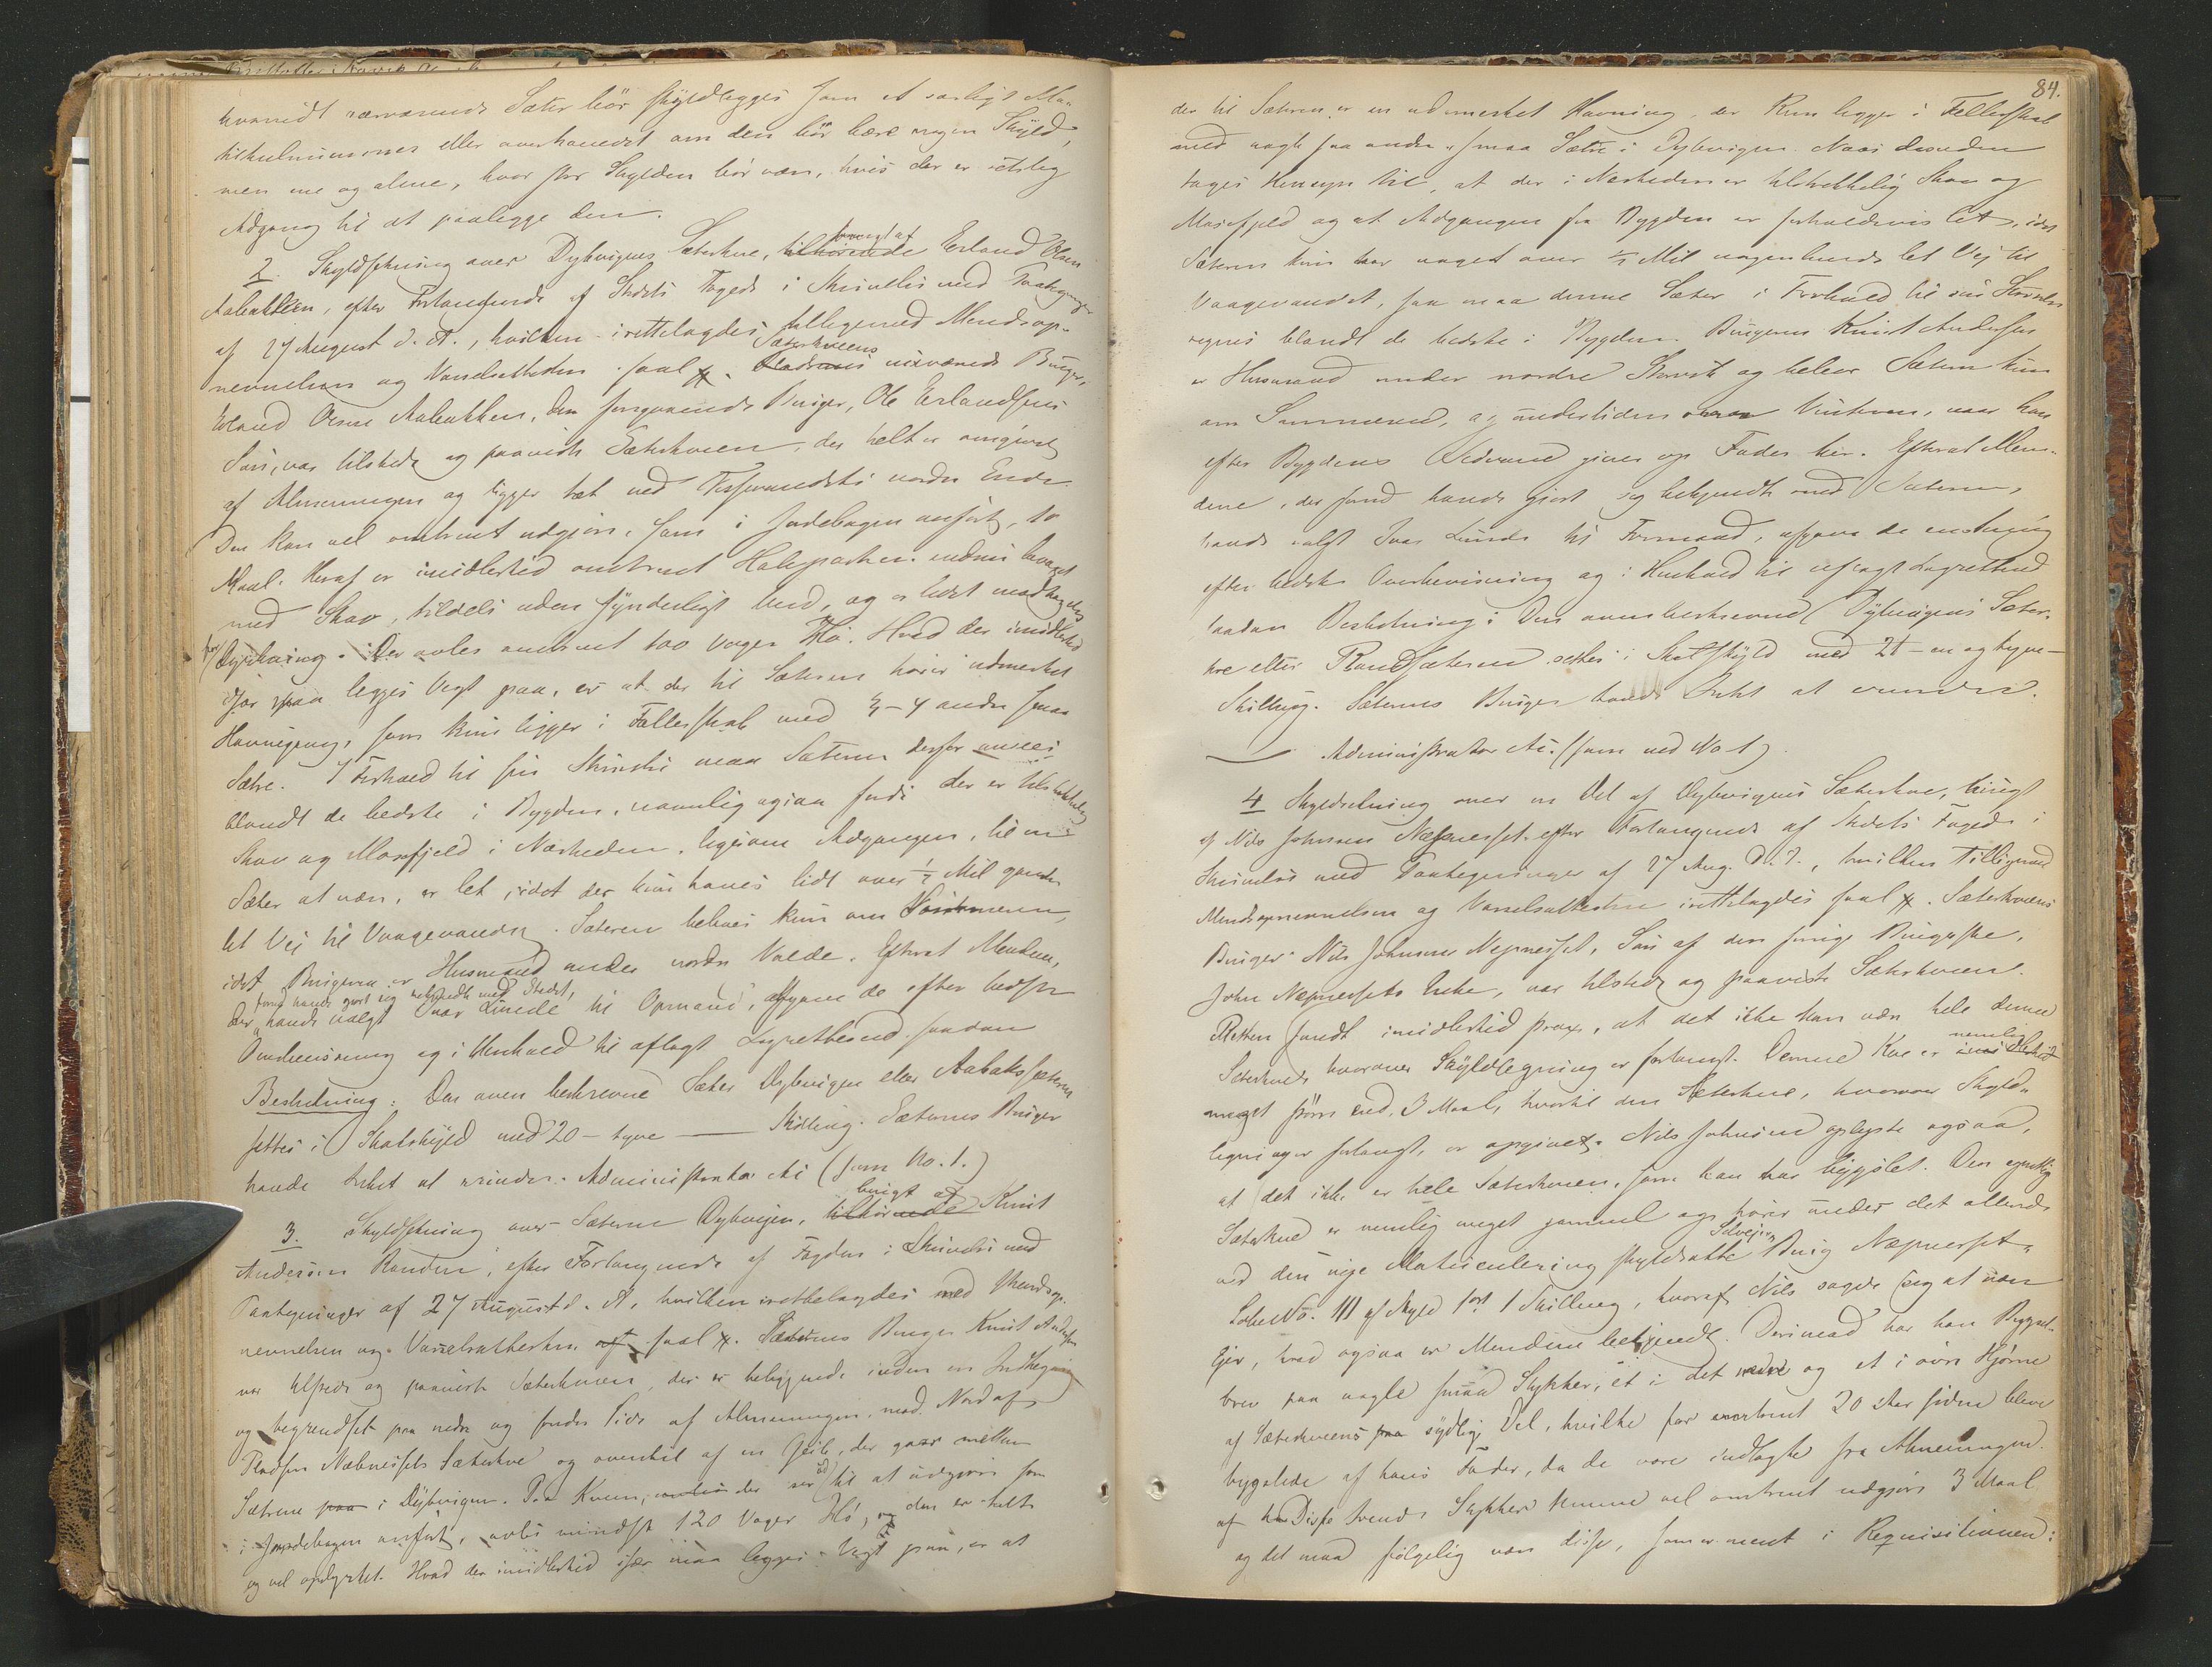 hvorvidt nærværende Sæter bör skyldlægges som et særligt Ma-
trikulnummer eller overhovedet om den bör bære nogen Skyld,
men ene og alene, hvor stor Skylden bör være, hvis der er retslig
Adgang til at paalægge den.
2. Skyldsetning over Dybvigens Sæterkve, tilhörende brugt af Erland Olsen
Aabakken, efter Forlangende af Stedets Foged i Skrivelse med Paategninger
af 27 August d. A., hvilken irettelagdes tilligemed Mendsop-
nevnelsen og Varselsattesten saal. Pladsens Sæterkveens nuværende Bruger,
Erland Olsens Aabakken, den forhenværende Bruger, Ole Erlandsens
Sön, var tilstede og paaviste Sæterkveen, der helt er omgivet
af Almenningen og ligger tæt ved Vandets nordre Ende.
Den kan vel omtrent udgjöre, som i Jordebogen anfört, 10
Maal. Heraf er imidlertid omtrent Halvparten endnu bevoxet
med Skov, tildels uden synderligt Værd, og
for Dyrkning. Der avles omtrent 100 Voger Hö. Hvad der imidlertid
især maa legges Vegt paa, er at der til Sæteren hörer udmerket
Havnegang, som kun ligger i Fælleskab med 3-4 andre smaa
Sætre. I Forhold til sin Störrelse maa Sæteren derfor ansees
blandt de bedste i Bygden, navnlig ogsaa fordi der er tilstrækkelig
Skov og Mosefjeld i Nærheden, ligesom Adgangen, til en
Sæter at være, er let, idet der kun haves lidt over ½ Mil ganske
let Vej til Vaagevandet. Sæteren beboes kun om Sommeren,
idet Brugeren er Husmand under nordre Valde. Efterat Mendene,
der havde valgt Ivar Lunde til Opmand, forud havde gjort sig bekjendt med Stedet, afgave de efter bedste
Overbevisning og i Henhold til aflagt Lagretteseed saadan
Beslutning: Den oven beskrevne Sæter Dybvigen eller Aabaksæteren
settes i Skatskyld med 20 – tyve – Skilling. Sæterens Bruger
havde Intet at erindre. Administrator Ai (som No. 1.)
3. Skyldsetning over Sæteren Dybvigen, tilhörende brugt af Knut
Andersen Randen, efter Forlangende af Fogden i Skrivelse med
Paategninger af 27 August d. A, hvilken irettelagdes med Mendsop-
nevnelsen og Varselsattesten saal. Sæterens Bruger Knut Andersen
var tilstede og paaviste Sæterkveen, der er beliggende inden en Indhegning
og begrændset paa nedre og söndre Side af Almenningen, mod Nord af
Pladsen Næbnesets Sæterkve og oventil af en Geile, der gaar mellem
Sætrene paa i Dybvigen. Paa Kveen, der ser ud til at udgjöre som
i Jordebogen anfört, avles mindst 120 Voger Hö, og den er helt
og vel opdyrket. Hvad der imidlertid især maa legges Vegt paa, er at
84.
der til Sæteren er en udmerket Havning, der kun ligger i Fellesskab
med nogle faa andre smaa Sætre i Dybvigen. Naar desuden
tages Hensyn til, at der i Nærheden er tilstrekkelig Skov og
Mosefjeld og at Adgangen fra Bygden er forholdsvis let, idet
Sæteren kun har noget over ½ Mil nogenlunde let Vej til
Vaagevandet, saa maa denne Sæter i Forhold til sin Störrelse
regnes blandt de bedste i Bygden. Brugeren Knut Andersen
er Husmand under nordre Storvik og beboer Sæteren kun
om Sommeren, og undertiden om Vinteren, naar han
efter Bygdens Sedvane giver op Foder her. Efterat Men-
dene, der forud havde gjort sig bekjendt med Sæteren,
havde valgt Ivar Lunde til Formand, afgave de enstemmig
efter bedste Overbevisning og i Henhold til aflagt Lagretteeed
saadan Beslutning: Den ovenbeskrevne Dybvigens Sæter-
kve eller Randsæteren settes i Skatskyld med 21 – en og tyve –
Skilling. Sæterens Bruger havde Intet at erindre.
Administrator Ai. (som ved No 1).
4 Skyldsetning over en Del af Dybvigens Sæterkve, brugt
af Nils Johnsen Næpneset efter Forlangende af Stedets Foged i
Skrivelse med Paategninger af 27 Aug. d. A., hvilken tilligemed
Mendsopnevnelsen og Varselsattesten irettelagdes saal. Sæterkveens
Bruger Nils Johnsen Næpneset, Sön af den forrige Brugerske,
John Næpnesets Enke, var tilstede og paaviste Sæterkveen.
Retten fandt imidlertid strax, at det ikke kan være hele denne
Sæterkve hvorover Skyldlægning er forlangt. Denne Kve er nemlig
meget större end 3 Maal, hvortil den Sæterkve, hvorover Skyld-
legning er forlangt, er opgivet. Nils Johnsen oplyste ogsaa,
at det ikke er hele Sæterkveen, som han har bygslet. Den egentlige
Sæterkve er nemlig meget gammel og hörer under det allerede
ved den nye Matriculering skyldsatte Selvejer Brug Næpneset
Löbe No. 111 af Skyld 1 ort 1 Skilling, hvoraf Nils sagde sig at være
Ejer, hvad ogsaa er Mendene bekjendt. Derimod har han Bygsel-
brev paa nogle smaa Stykker, et i det nedre og et i övre Hjörne
af Sæterkveens paa sydlige Del, hvilke for omtrent 20 Aar siden bleve
bygslede af hans Fader, da de vare indtagte fra Almenningen.
af Disse tvende Stykker kunne vel omtrent udgjöre 3 Maal
og det maa fölgelig være disse, som er ment i Requisitionen: